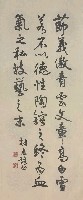 節義傲青雲文章高白雪
若不以德性陶鎔之終為血
氣之私技藝之末